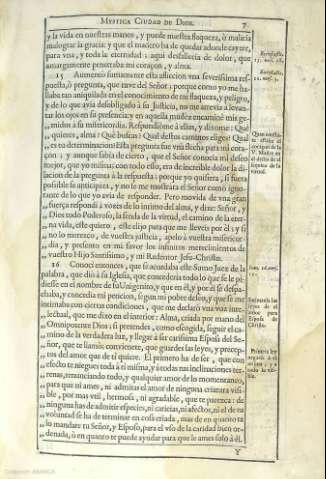 MYSTICA CIUDAD DE DIOS.
7
y la vida en nuestras manos, y puede nuestra flaqueza, ò malicia
malograr la gracia: y que el madero ha de quedar adonde cayere,
para vna, y toda la eternidad: aqui desfallecia de dolor, que
amargamente penetraba mi coraçon, y alma.
15 Aumentò sumamente esta afliccion vna severissima res-
puesta, ò pregunta, que tuve del Señor: porque como yo me ha-
llaba tan aniquilada en el conocimiento de mi flaqueza, y peligro,
y de lo que avia desobligado à su Justicia, no me atrevia à levan-
tar los ojos en su presencia: y en aquella mudez encaminè mis ge-
midos à su misericordia. Respondiòme à ellos, y dixome: Què
quieres, alma? Què buscas? Quàl destos caminos eliges? Quàl
es tu determinacion? Esta pregunta fue vna flecha para mi cora-
çon; y aunque sabia de cierto, que el Señor conocia mi deseo
mejor, que yo misma: con todo esso, era de increible dolor la di-
lacion de la pregunta à la respuesta: porque yo quisiera, si fuera
posible se anticipàra, y no se me mostràra el Señor como igno-
rante de lo que yo avia de responder. Pero movida de vna gran
fuerça respondì à vozes de lo intimo del alma, y dixe: Señor, y
Dios todo Poderoso, la senda de la virtud, el camino de la eter-
na vida, este quiero, este elijo para que me lleveis por èl: y si
no lo merezco, de vuestra justicia, apelo à vuestra misericor-
dia, y presento en mi favor los infinitos merecimientos de
vuestro Hijo Santissimo, y mi Redentor Jesu-Christo.
16 Conocì entonces, que se acordaba este Sumo Juez de la
palabra, que diò à su Iglesia, que concederia todo lo que se le pi-
diesse en el nombre de su Vnigenito, y que en èl, y por èl se despa-
chaba, y concedia mi peticion, segun mi pobre deseo, y que se me
intimaba con ciertas condiciones, que me declarò vna voz inte-
lectual, que me dixo en el interior: Alma, criada por mano del
Omnipotente Dios; si pretendes, como escogida, seguir el ca-
mino de la verdadera luz, y llegar à ser carissima Esposa del Se-
ñor, que te llama: conviene, que guardes las leyes, y precep-
tos del amor que de ti quiere. El primero ha de ser, que con
efecto te niegues toda à ti misma, y à todas tus inclinaciones ter-
renas, renunciando todo, y qualquier amor de lo momentaneo,
para que ni ames, ni admitas el amor de ninguna criatura visi-
ble, por mas vtil, hermosa, ni agradable, que te parezca: de
ninguna has de admitir especies, ni caricias, ni afectos, ni el de tu
voluntad se ha de terminar en cosa criada, mas de en quanto te
lo mandare tu Señor, y Esposo, para el vso de la caridad bien or-
denada, ò en quanto te puede ayudar para que le ames solo à èl.
Y